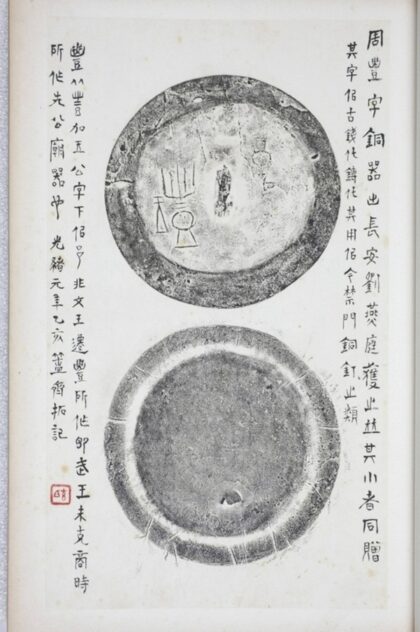 周豐字銅器出長安劉燕庭獲之竝其小者同贈
其字佀古錢化鑄化其用佀今禁門銅釘之類
豐从豐加五公字下佀邑非文王遷豐所作即武王未克商時
所作先公廟器也 光緒元年乙亥簠齋拓記